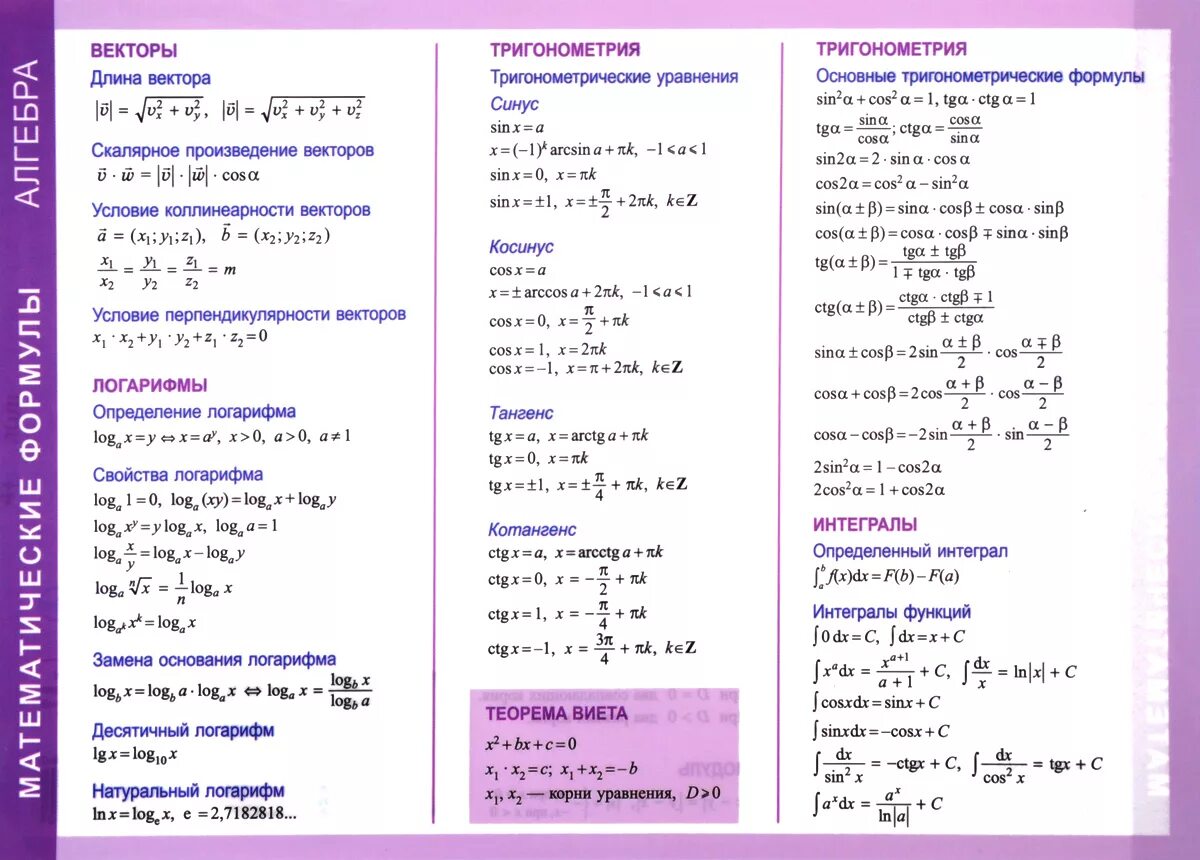 МАТЕМАТИЧЕСКИЕ ФОРМУЛЫ АЛГЕБРА
ВЕКТОРЫ
Длина вектора
|v⃗| = √(v²ₓ + v²ᵧ), |v⃗| = √(v²ₓ + v²ᵧ + v²_z)
Скалярное произведение векторов
v⃗ · w⃗ = |v⃗| · |w⃗| · cos α
Условие коллинеарности векторов
a⃗ = (x₁; y₁; z₁), b⃗ = (x₂; y₂; z₂)
x₁/x₂ = y₁/y₂ = z₁/z₂ = m
Условие перпендикулярности векторов
x₁ · x₂ + y₁ · y₂ + z₁ · z₂ = 0
ЛОГАРИФМЫ
Определение логарифма
logₐ x = y ⇔ x = aʸ, x > 0, a > 0, a ≠ 1
Свойства логарифма
logₐ 1 = 0, logₐ (xy) = logₐ x + logₐ y
logₐ xʸ = y logₐ x, logₐ a = 1
logₐ x/y = logₐ x − logₐ y
logₐ ⁿ√x = 1/n logₐ x
log_{a^k} x^k = logₐ x
Замена основания логарифма
log_b x = log_b a · logₐ x ⇔ logₐ x = log_b x / log_b a
Десятичный логарифм
lg x = log₁₀ x
Натуральный логарифм
ln x = logₑ x, e = 2,7182818...
ТРИГОНОМЕТРИЯ
Тригонометрические уравнения
Синус
sin x = a
x = (−1)^k arcsin a + πk, −1 ⩽ a ⩽ 1
sin x = 0, x = πk
sin x = ±1, x = ±π/2 + 2πk, k∈Z
Косинус
cos x = a
x = ± arccos a + 2πk, −1 ⩽ a ⩽ 1
cos x = 0, x = π/2 + πk
cos x = 1, x = 2πk
cos x = −1, x = π + 2πk, k∈Z
Тангенс
tg x = a, x = arctg a + πk
tg x = 0, x = πk
tg x = ±1, x = ±π/4 + πk, k∈Z
Котангенс
ctg x = a, x = arcctg a + πk
ctg x = 0, x = −π/2 + πk
ctg x = 1, x = −π/4 + πk
ctg x = −1, x = 3π/4 + πk, k∈Z
ТЕОРЕМА ВИЕТА
x² + bx + c = 0
x₁ · x₂ = c; x₁ + x₂ = −b
x₁, x₂ — корни уравнения, D ⩾ 0
ТРИГОНОМЕТРИЯ
Основные тригонометрические формулы
sin²α + cos²α = 1, tgα · ctgα = 1
tgα = sinα/cosα; ctgα = cosα/sinα
sin2α = 2 · sinα · cosα
cos2α = cos²α − sin²α
sin(α ± β) = sinα · cosβ ± cosα · sinβ
cos(α ± β) = cosα · cosβ ∓ sinα · sinβ
tg(α ± β) = (tgα ± tgβ)/(1 ∓ tgα · tgβ)
ctg(α ± β) = (ctgα · ctgβ ∓ 1)/(ctgβ ± ctgα)
sinα ± cosβ = 2sin (α ± β)/2 · cos (α ∓ β)/2
cosα + cosβ = 2cos (α + β)/2 · cos (α − β)/2
cosα − cosβ = −2sin (α + β)/2 · sin (α − β)/2
2sin²α = 1 − cos2α
2cos²α = 1 + cos2α
ИНТЕГРАЛЫ
Определенный интеграл
∫ₐᵇ f(x)dx = F(b) − F(a)
Интегралы функций
∫0 dx = C, ∫dx = x + C
∫xᵃdx = xᵃ⁺¹/(a + 1) + C, ∫dx/x = ln|x| + C
∫cosxdx = sinx + C
∫sinxdx = −cosx + C
∫dx/sin² x = −ctgx + C, ∫dx/cos² x = tgx + C
∫aˣdx = aˣ/ln|a| + C